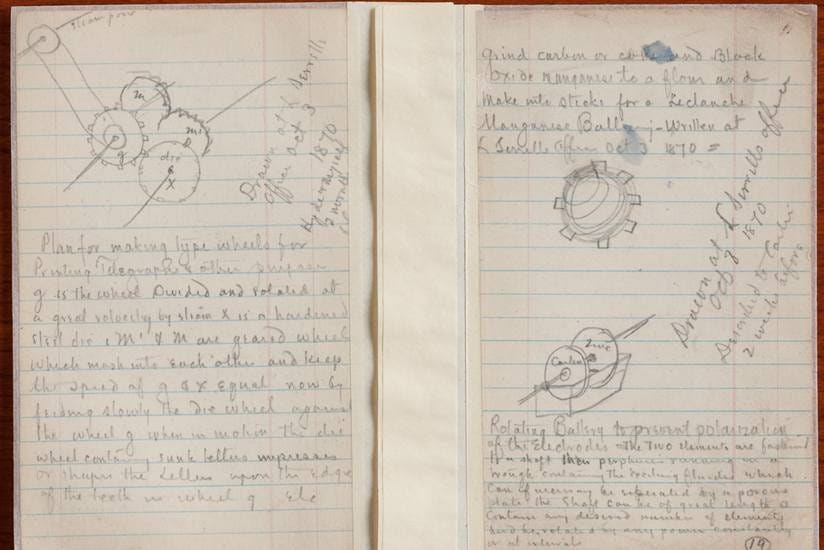 steam power
m
m'
g
die
X
Drawn at L Serrells
Office Oct 3
1870
Plan for making type wheels for
Printing Telegraphs & other purpose
g is the wheel Divided and rotated at
a great velocity by steam X is a hardened
steel die & M' & M are geared wheel
which mesh into each other and keep
the speed of g & X Equal now by
feeding slowly the die wheel against
the wheel g when in motion the die
wheel containing sunk letters impresses
or shapes the Letters upon the Edge
of the teeth in wheel g Etc
grind carbon or and Black
Oxide Manganese to a flour and
make into sticks for a Leclanche
Manganese Battery ;- Written at
L Serrells Office Oct 3 1870 =
Drawn at L Serrells office
Oct 3 1870
Described to
2 weeks before
Carbon
Zinc
Rotating Battery to prevent polarization
of the Electrodes = The two elements are fastened
to a shaft their peripheries running in a
trough containing the exciting fluids which
can if necessary be separated by a porous
plate the Shaft can be of great length &
Contain any desired number of elements
and be rotated by any power constantly
or at intervals
(19)